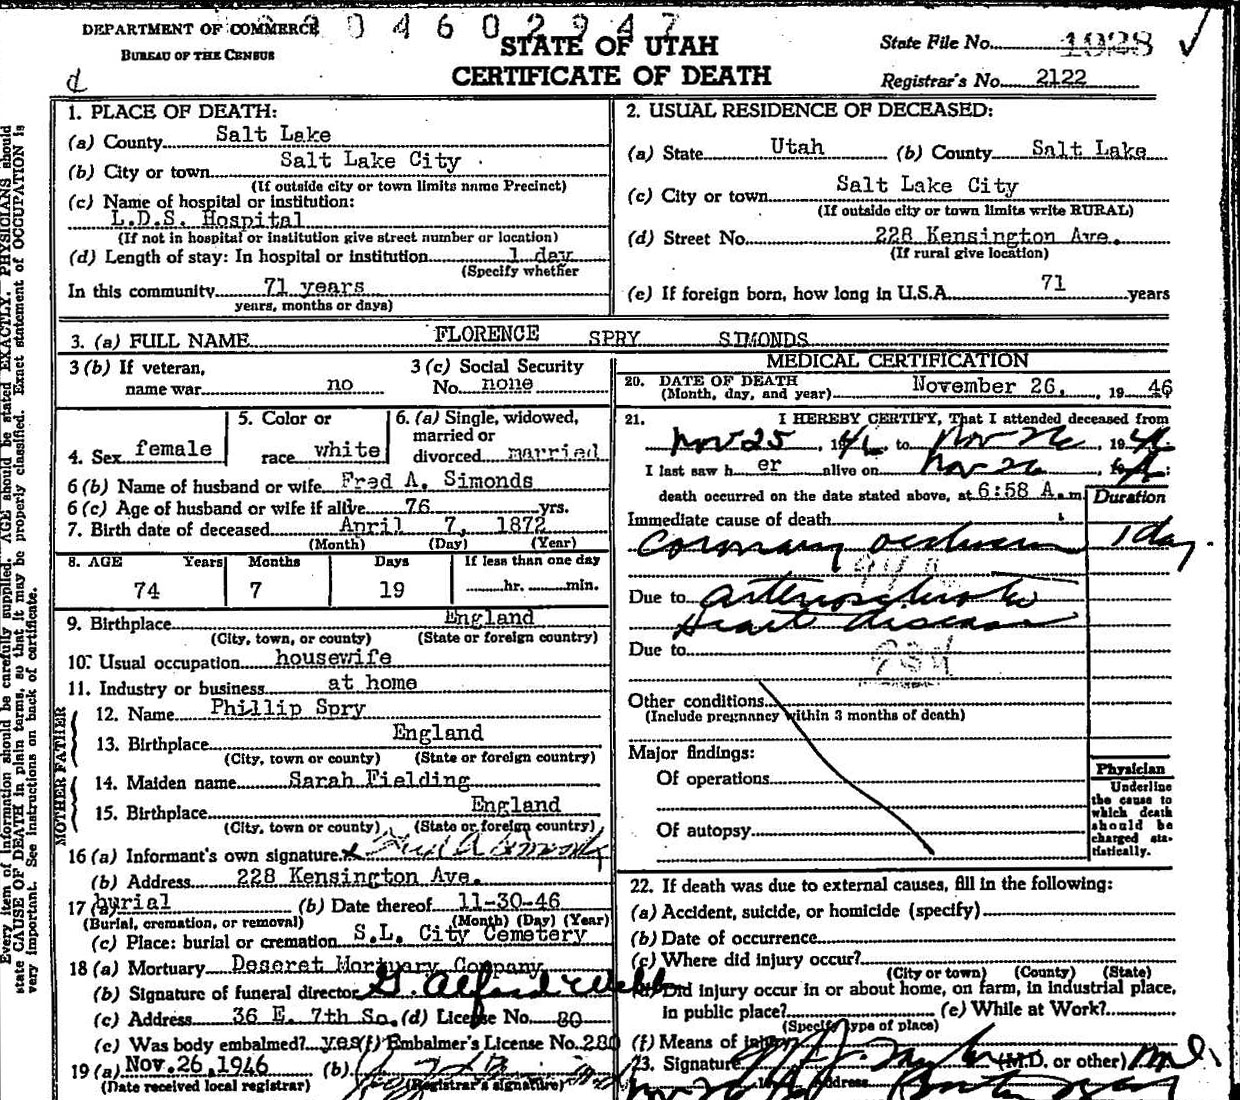 DEPARTMENT OF COMMERCE
BUREAU OF THE CENSUS
0 4 6 0 2 9 4 7
STATE OF UTAH
CERTIFICATE OF DEATH
State File No. 1928
Registrar's No. 2122
Every item of information should be carefully supplied. AGE should be stated EXACTLY. PHYSICIANS should
state CAUSE OF DEATH in plain terms, so that it may be properly classified. Exact statement of OCCUPATION is
very important. See instructions on back of certificate.
1. PLACE OF DEATH:
(a) County Salt Lake
(b) City or town Salt Lake City
(If outside city or town limits name Precinct)
(c) Name of hospital or institution:
L.D.S. Hospital
(If not in hospital or institution give street number or location)
(d) Length of stay: In hospital or institution 1 day
(Specify whether
In this community 71 years
years, months or days)
2. USUAL RESIDENCE OF DECEASED:
(a) State Utah (b) County Salt Lake
(c) City or town Salt Lake City
(If outside city or town limits write RURAL)
(d) Street No. 228 Kensington Ave.
(If rural give location)
(e) If foreign born, how long in U.S.A. 71 years
3. (a) FULL NAME FLORENCE SPRY SIMONDS
3 (b) If veteran,
name war no
3 (c) Social Security
No. none
4. Sex female
5. Color or
race white
6. (a) Single, widowed,
married or
divorced married
6 (b) Name of husband or wife Fred A. Simonds
6 (c) Age of husband or wife if alive 76 yrs.
7. Birth date of deceased April 7, 1872
(Month) (Day) (Year)
8. AGE Years Months Days If less than one day
74 7 19 hr. min.
9. Birthplace England
(City, town, or county) (State or foreign country)
10. Usual occupation housewife
11. Industry or business at home
FATHER
12. Name Phillip Spry
13. Birthplace England
(City, town or county) (State or foreign country)
MOTHER
14. Maiden name Sarah Fielding
15. Birthplace England
(City, town or county) (State or foreign country)
16 (a) Informant's own signature x Fred A Simonds
(b) Address 228 Kensington Ave.
17 (a) burial (b) Date thereof 11-30-46
(Burial, cremation, or removal) (Month) (Day) (Year)
(c) Place: burial or cremation S.L. City Cemetery
18 (a) Mortuary Deseret Mortuary Company
(b) Signature of funeral director G. Alfred Webb
(c) Address 36 E. 7th So. (d) License No. 80
(e) Was body embalmed? yes (f) Embalmer's License No. 280
19 (a) Nov.26,1946 (b)
(Date received local registrar) (Registrar's signature)
MEDICAL CERTIFICATION
20. DATE OF DEATH
(Month, day, and year) November 26, 19 46
21. I HEREBY CERTIFY, That I attended deceased from
Nov 25, 1946 to Nov 26 1946
I last saw h er alive on Nov 26
death occurred on the date stated above, at 6:58 A.m.
Duration
Immediate cause of death
Coronary occlusion 1 day
Due to arteriosclerotic
Heart disease
Due to
Other conditions
(Include pregnancy within 3 months of death)
Major findings:
Of operations
Of autopsy
Physician
Underline
the cause to
which death
should be
charged sta-
tistically.
22. If death was due to external causes, fill in the following:
(a) Accident, suicide, or homicide (specify)
(b) Date of occurrence
(c) Where did injury occur?
(City or town) (County) (State)
(d) Did injury occur in or about home, on farm, in industrial place,
in public place? (e) While at Work?
(Specify type of place)
(f) Means of injury
23. Signature (M.D. or other) M.D.
Address